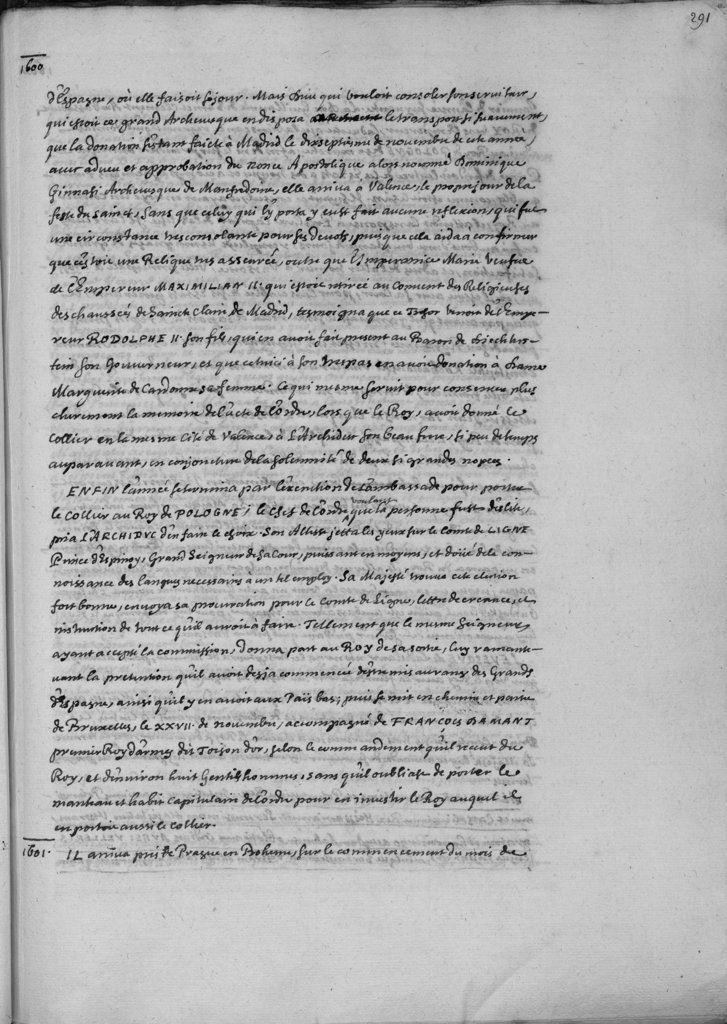 291
1600
d'Espagne, où elle faisoit sejour. Mais Dieu qui vouloit consoler son serviteur,
qui estoit ce grand Archevesque en disposa le transport si suavement,
que la donation s'estant faicte à Madrid le dixseptieme de novembre de cete année,
avec adveu et approbation du nonce Apostolique alors nommé Dominique
Ginnasi Archevesque de Manfredoine, elle arriva à Valence, le propre jour de la
feste du sainct, sans que celuy qui l'y porta y eust fait aucune reflexion, qui fut
une circonstance tres consolante pour ses Devots, puis que cela aida à confirmer
que c'estoit une Relique tres asseurée, outre que l'Imperatrice Marie veufve
de l'Empereur MAXIMILIAN II. qui estoit retirée au Convent des Religieuses
deschaussées de Saincte Claire de Madrid, tesmoigna que ce Tresor venoit de l'Empe-
reur RODOLPHE II. son fils, qui en avoit fait present au Baron de Diechtris-
tein son Gouverneur, et que cetuici à son trespas en avoit donation à Dame
Marguerite de Cardonne sa femme. Ce qui mesme servit pour conserver plus
cherement la memoire de l'acte de l'ordre, lors que le Roy, avoit donné le
Collier en la mesme Cité de Valence, à L'Archiduc son beau frere, si peu de temps
auparavant, en conjoncture de la solemnité de deux si grandes nopces.
ENFIN l'année se termina par l'exention de l'ambassade pour porter
le Collier au Roy de POLOGNE; le Chef de l'ordre voulant que la personne fust d'eslite,
pria L'ARCHIDUC d'en faire le choix. Son Altesse jetta les yeux sur le Comte de LIGNE
Prince d'Espinoy, Grand Seigneur de sa Cour, puissant en moyens, et doüé de la con-
noissance des langues necessaires à un tel employ. Sa Majesté trouva cete election
fort bonne, envoya sa procuration pour le Comte de Ligne, lettre de creance, et
instruction de tout ce qu'il auroit à faire. Tellement que le mesme Seigneur,
ayant accepté la commission, donna part au ROY de sa sortie, luy ramente-
vant la pretention qu'il avoit desja commencé d'estre mis au rang des Grands
d'Espagne, ainsi qu'il y en avoit aux Païs bas; puis se mit en chemin et partit
de Bruxelles, le XXVII. de novembre, accompagné de FRANÇOIS DAMANT
premier Roy d'armes dit Toison d'or, selon le commandement qu'il receut du
Roy, et d'environ huit Gentilshommes, sans qu'il oubliast de porter le
manteau et habit capitulaire de l'ordre pour en investir le Roy auquel il
en portoit aussi le Collier.
1601. IL arriva pres de Prague en Boheme, sur le commencement du mois de